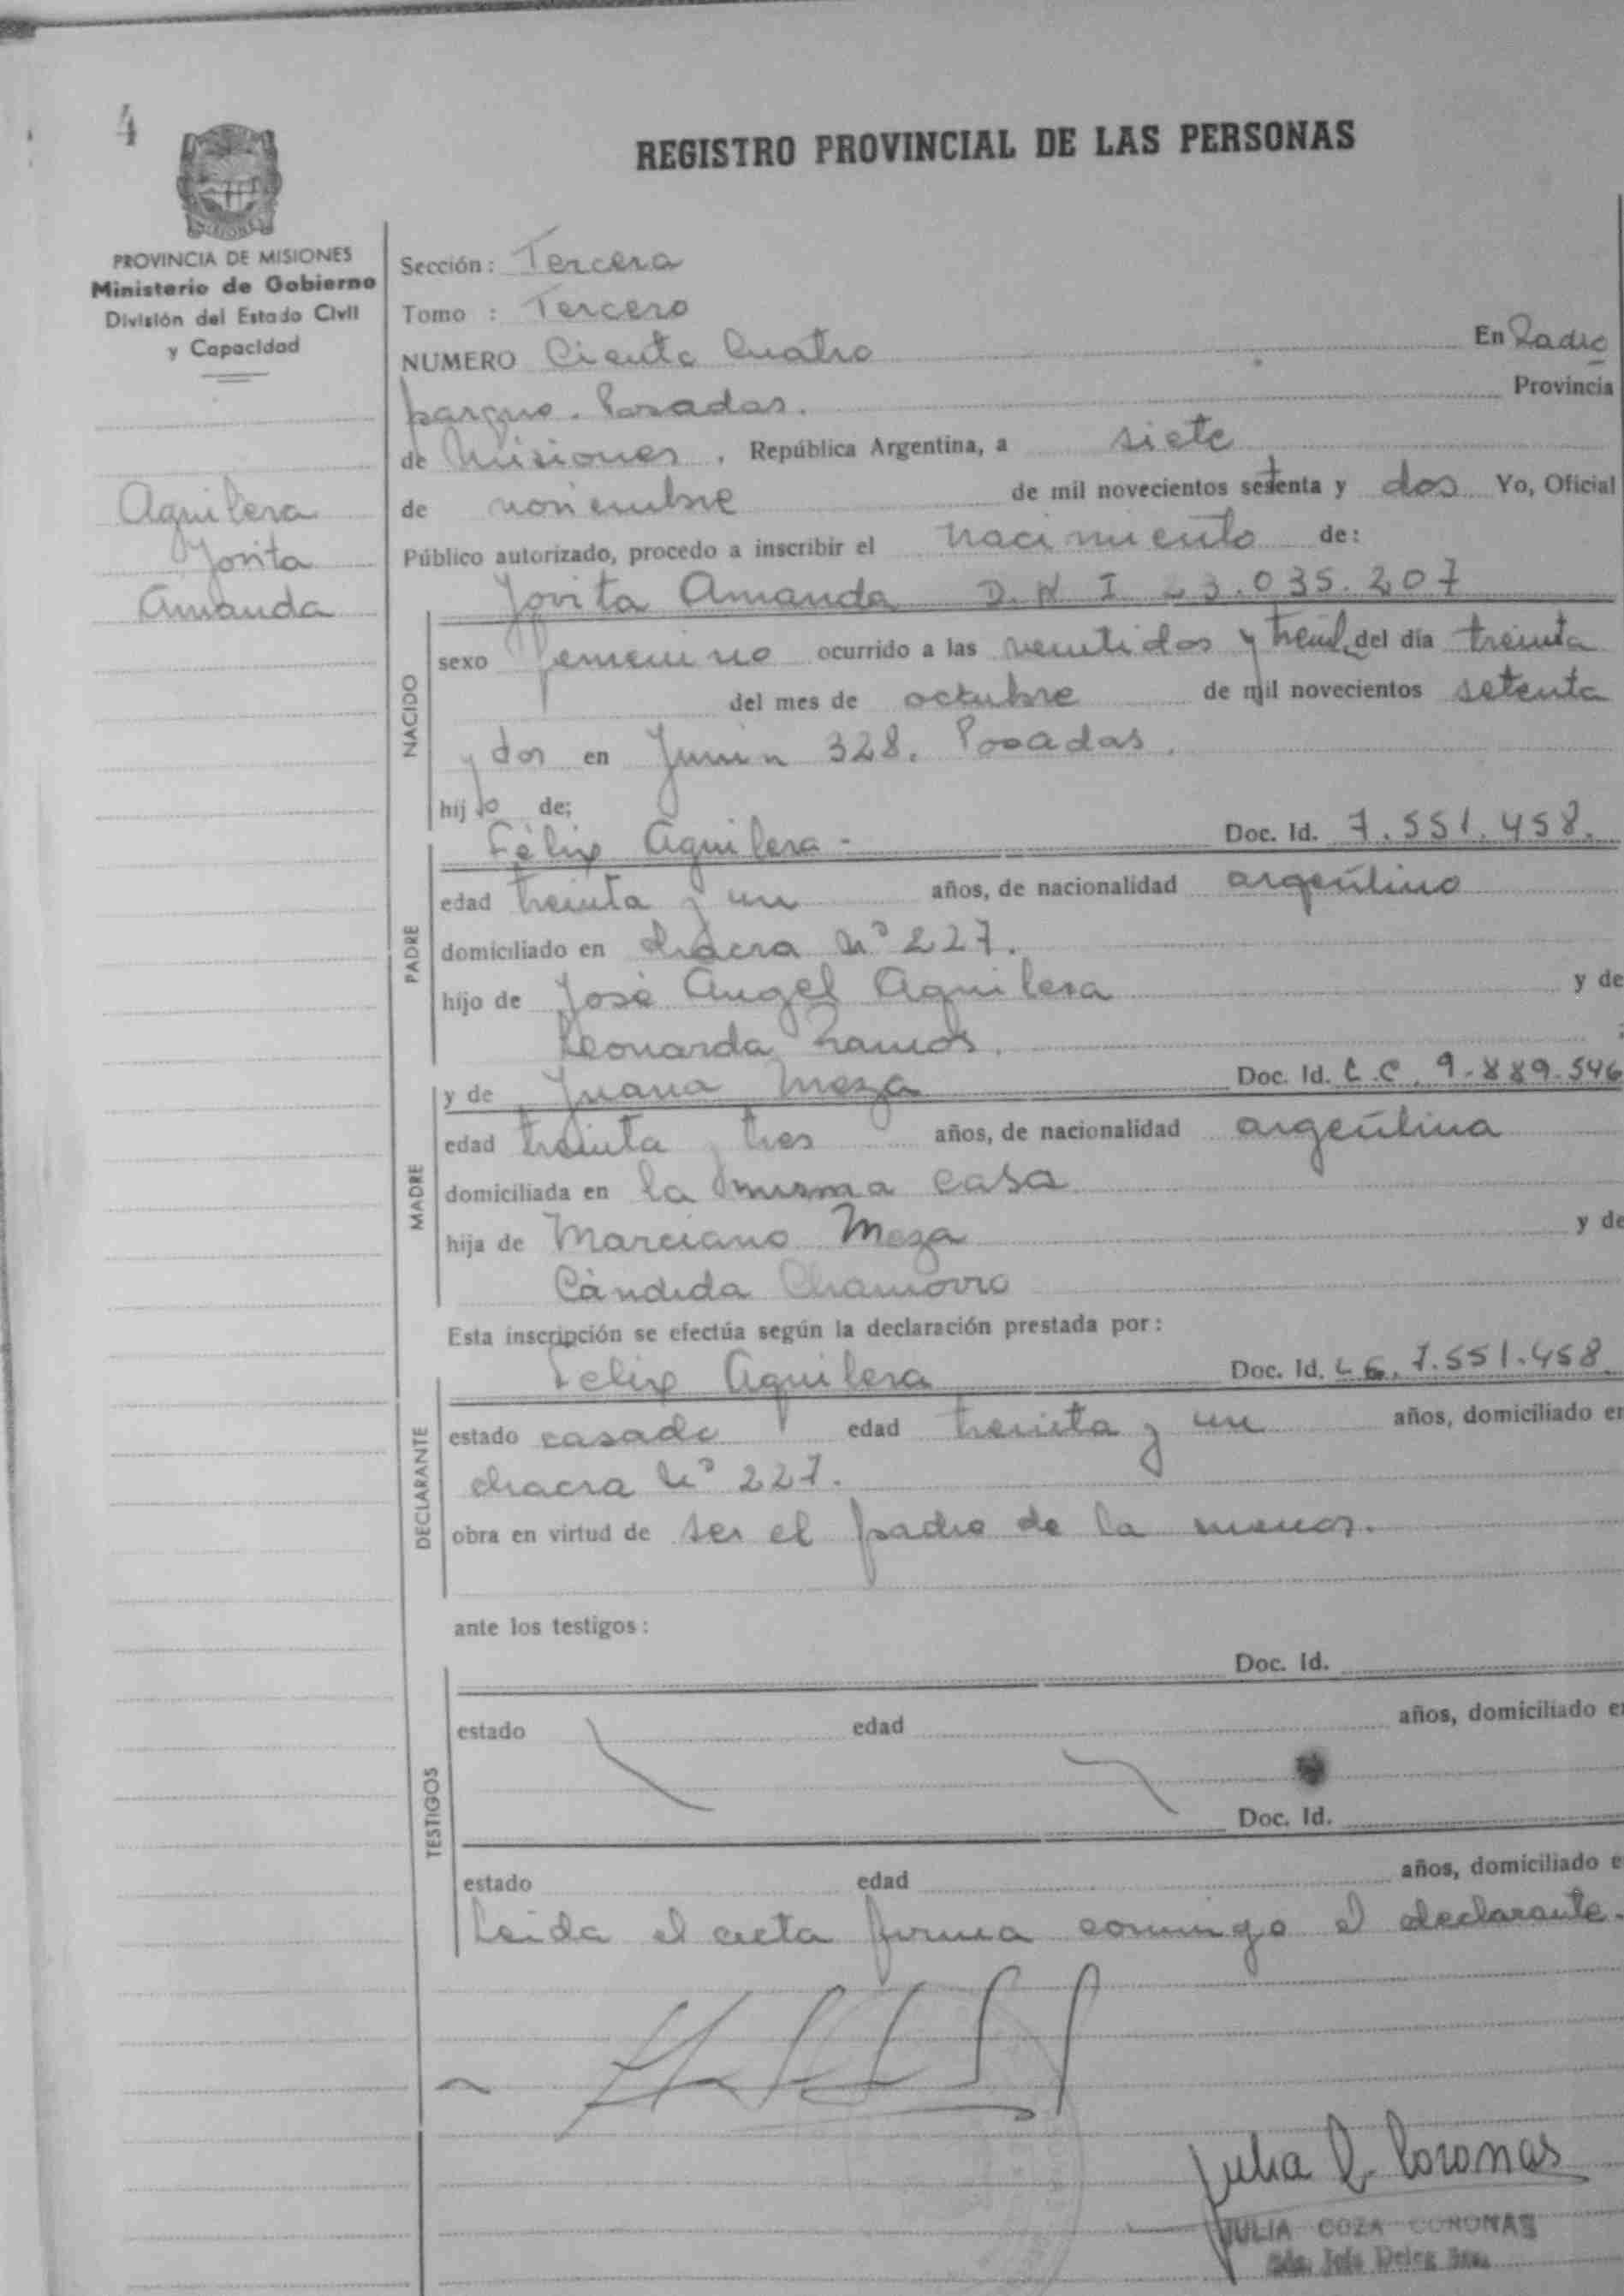 4
REGISTRO PROVINCIAL DE LAS PERSONAS
PROVINCIA DE MISIONES
Ministerio de Gobierno
División del Estado Civil
y Capacidad
Aguilera
Jovita
Amanda
Sección: Tercera
Tomo : Tercero
NUMERO Ciento Cuatro En Radio
parque. Posadas. Provincia
de Misiones, República Argentina, a siete
de noviembre de mil novecientos setenta y dos Yo, Oficial
Público autorizado, procedo a inscribir el nacimiento de:
Jovita Amanda D.N.I 23.035.207
NACIDO
sexo femenino ocurrido a las veintidos y treinta del día treinta
del mes de octubre de mil novecientos setenta
y dos en Junin 328. Posadas.
hij de;
PADRE
Félix Aguilera - Doc. Id. 7.551.458.
edad treinta y un años, de nacionalidad argentino
domiciliado en chacra Nº 227.
hijo de José Angel Aguilera y de
Leonarda Ramos. ;
MADRE
y de Juana Meza Doc. Id. C.C. 9.889.546
edad treinta y tres años, de nacionalidad argentina
domiciliada en la misma casa
hija de Marciano Meza y de
Cándida Chamorro
Esta inscripción se efectúa según la declaración prestada por:
DECLARANTE
Felix Aguilera Doc. Id. L E. 7.551.458
estado casado edad treinta y un años, domiciliado en
chacra Nº 227.
obra en virtud de ser el padre de la menor.
ante los testigos:
TESTIGOS
Doc. Id.
estado edad años, domiciliado e
Doc. Id.
estado edad años, domiciliado e
Leida el acta firma conmigo el declarante.
Julia C. Coronas
JULIA COZA CORONAS
Jefe Deleg